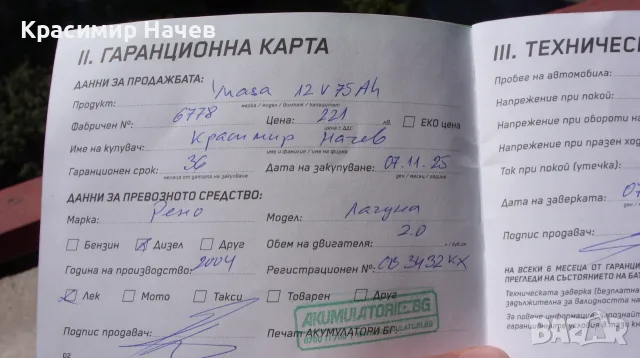 Красимир Начев
II. ГАРАНЦИОННА КАРТА
ДАННИ ЗА ПРОДАЖБАТА:
Продукт: 12V 75Ah
марка / модел / волтаж / капацитет
Фабричен №: 6778 Цена: 221 лв. ЕКО цена
цена с ДДС
Име на купувач: Красимир Начев
име и фамилия / име на фирма
Гаранционен срок: 36 Дата на закупуване: 07.11.25
месеца от датата на закупуване ден / месец / година
ДАННИ ЗА ПРЕВОЗНОТО СРЕДСТВО:
Марка: Рено Модел: Лагуна
Бензин Дизел Друг Обем на двигателя: 2.0 куб.см
Година на производство: 2004 Регистрационен №: СВ 3432 КХ
Лек Мото Такси Товарен Друг
AKUMULATORI.BG
Подпис продавач: Печат АКУМУЛАТОРИ БГ:
02
III. ТЕХНИЧЕС
Пробег на автомобила:
Напрежение при покой:
Напрежение при обороти на
Напрежение при празен ход
Ток при покой (утечка):
Дата на заверката: 07
Подпис продавач:
НА ВСЕКИ 6 МЕСЕЦА ОТ ГАРАНЦ
ПРЕГЛЕДИ НА СЪСТОЯНИЕТО НА БАТ
Техническата заверка (безплатна
задължителна за валидността н
За повече информация
гаранционните условия и тази к
bazar